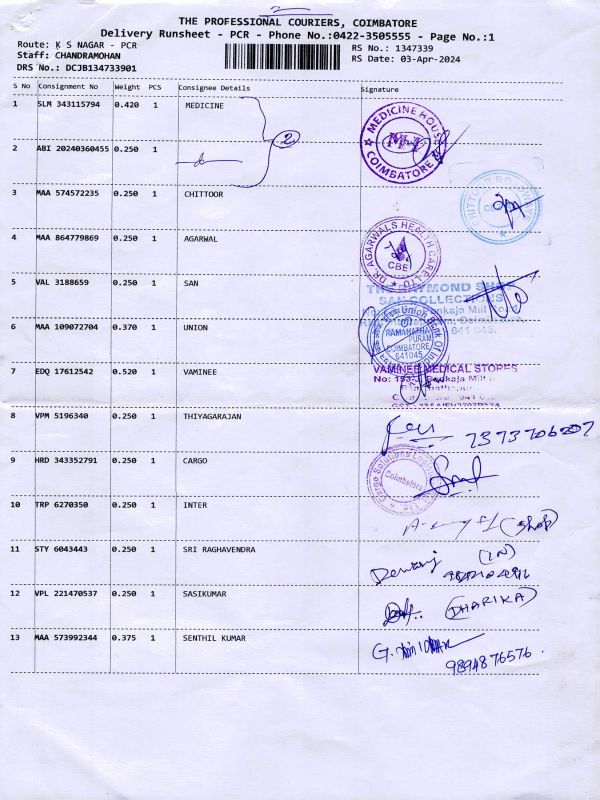 THE PROFESSIONAL COURIERS, COIMBATORE
Delivery Runsheet - PCR - Phone No.:0422-3505555 - Page No.:1
Route: K S NAGAR - PCR
RS No.: 1347339
Staff: CHANDRAMOHAN
RS Date: 03-Apr-2024
DRS No.: DCJB134733901
S No Consignment No Weight PCS Consignee Details Signature
1 SLM 343115794 0.420 1 MEDICINE
MEDICINE HOUSE
COIMBATORE
2
2 ABI 20240360455 0.250 1
3 MAA 574572235 0.250 1 CHITTOOR
4 MAA 864779869 0.250 1 AGARWAL
DR. AGARWALS HEALTH CARE LTD
CBE
5 VAL 3188659 0.250 1 SAN
THE RAYMOND SHOP
SAN COLLECTIONS
641 045.
6 MAA 109072704 0.370 1 UNION
Union Bank Of India
RAMANATHA
PURAM
COIMBATORE
641045
7 EDQ 17612542 0.520 1 VAMINEE
VAMINEE MEDICAL STORES
8 VPM 5196340 0.250 1 THIYAGARAJAN
7373706207
9 HRD 343352791 0.250 1 CARGO
Cargo Solutions
Coimbatore
10 TRP 6270350 0.250 1 INTER
(Shop)
11 STY 6043443 0.250 1 SRI RAGHAVENDRA
12 VPL 221470537 0.250 1 SASIKUMAR
(DHARIKA)
13 MAA 573992344 0.375 1 SENTHIL KUMAR
9894876576